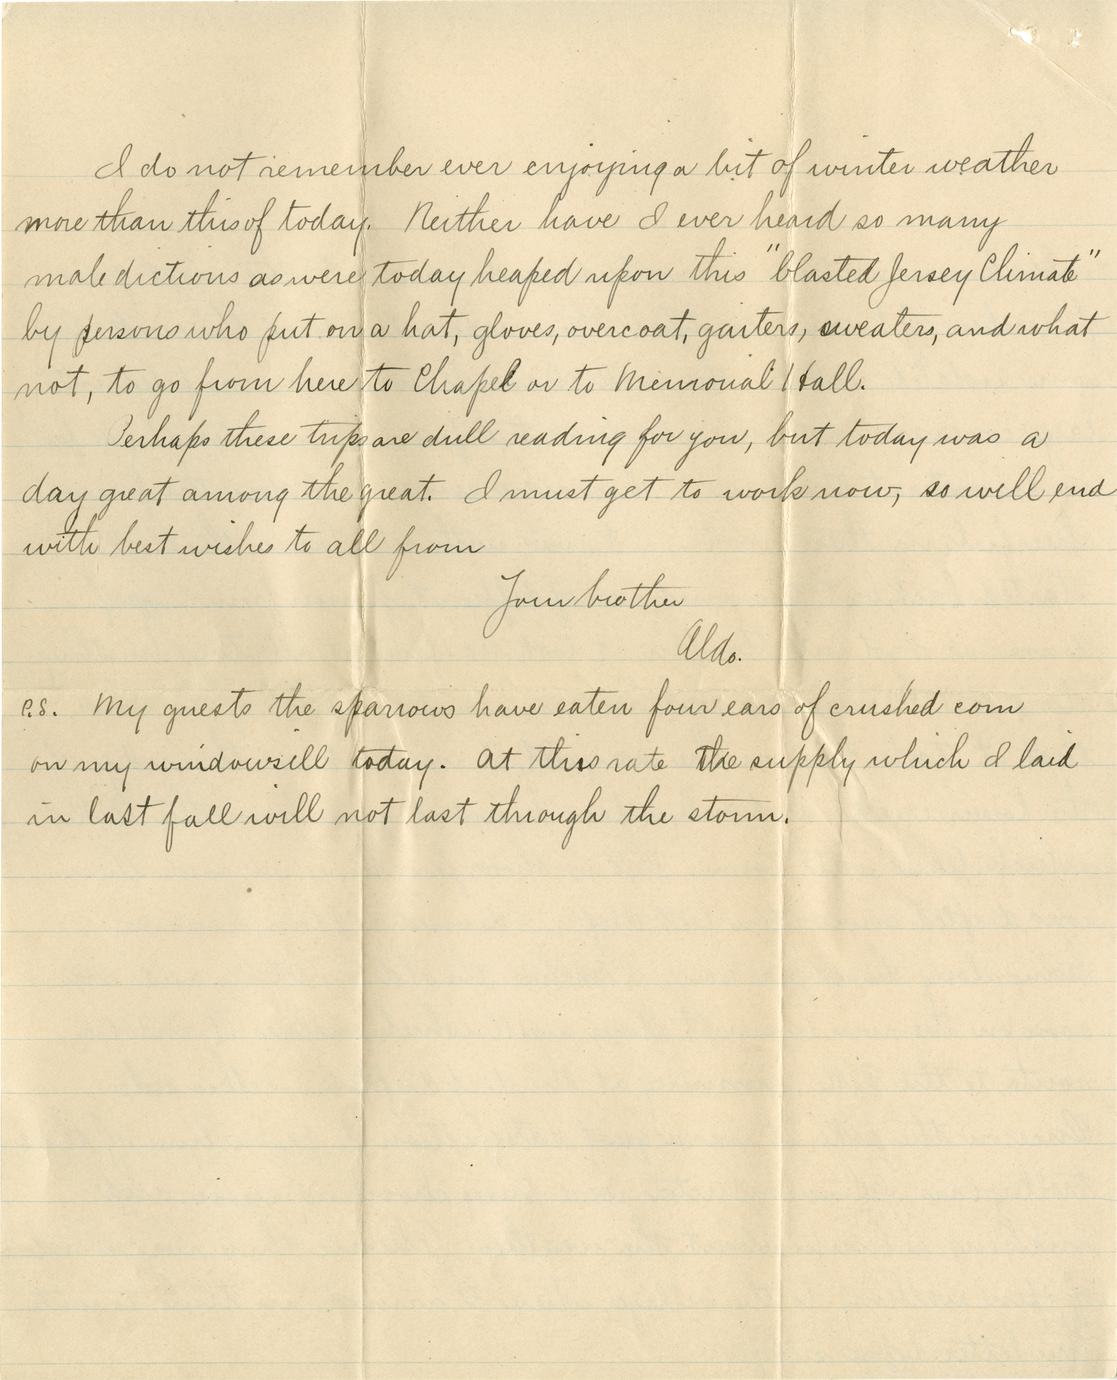 I do not remember ever enjoying a bit of winter weather
more than this of today. Neither have I ever heard so many
maledictions as were today heaped upon this "blasted Jersey Climate"
by persons who put on a hat, gloves, overcoat, gaiters, sweaters, and what
not, to go from here to Chapel or to Memorial Hall.
Perhaps these trips are dull reading for you, but today was a
day great among the great. I must get to work now, so will end
with best wishes to all from
Your brother
Aldo.
P.S. My guests the sparrows have eaten four ears of crushed corn
on my windowsill today. At this rate the supply which I laid
in last fall will not last through the storm.